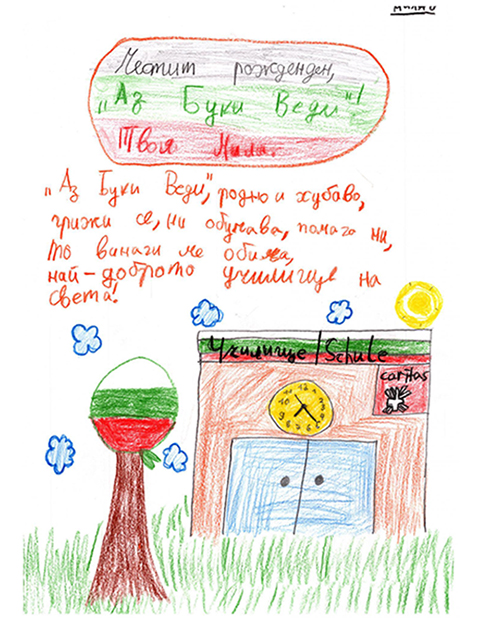 Честит рожденден,
„Аз Буки Веди"!
Твоя Мила.
„Аз Буки Веди", родно и хубаво,
грижи се, ни обучава, помага ни,
то винаги ме обича,
най-доброто училище на
света!
Училище / Schule
caritas
12